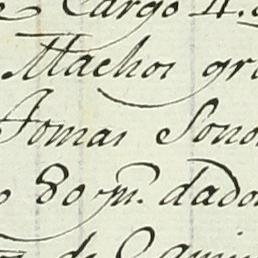 Cargo 4.
Machos gr
Tomas Sono
80 p.s dado
de